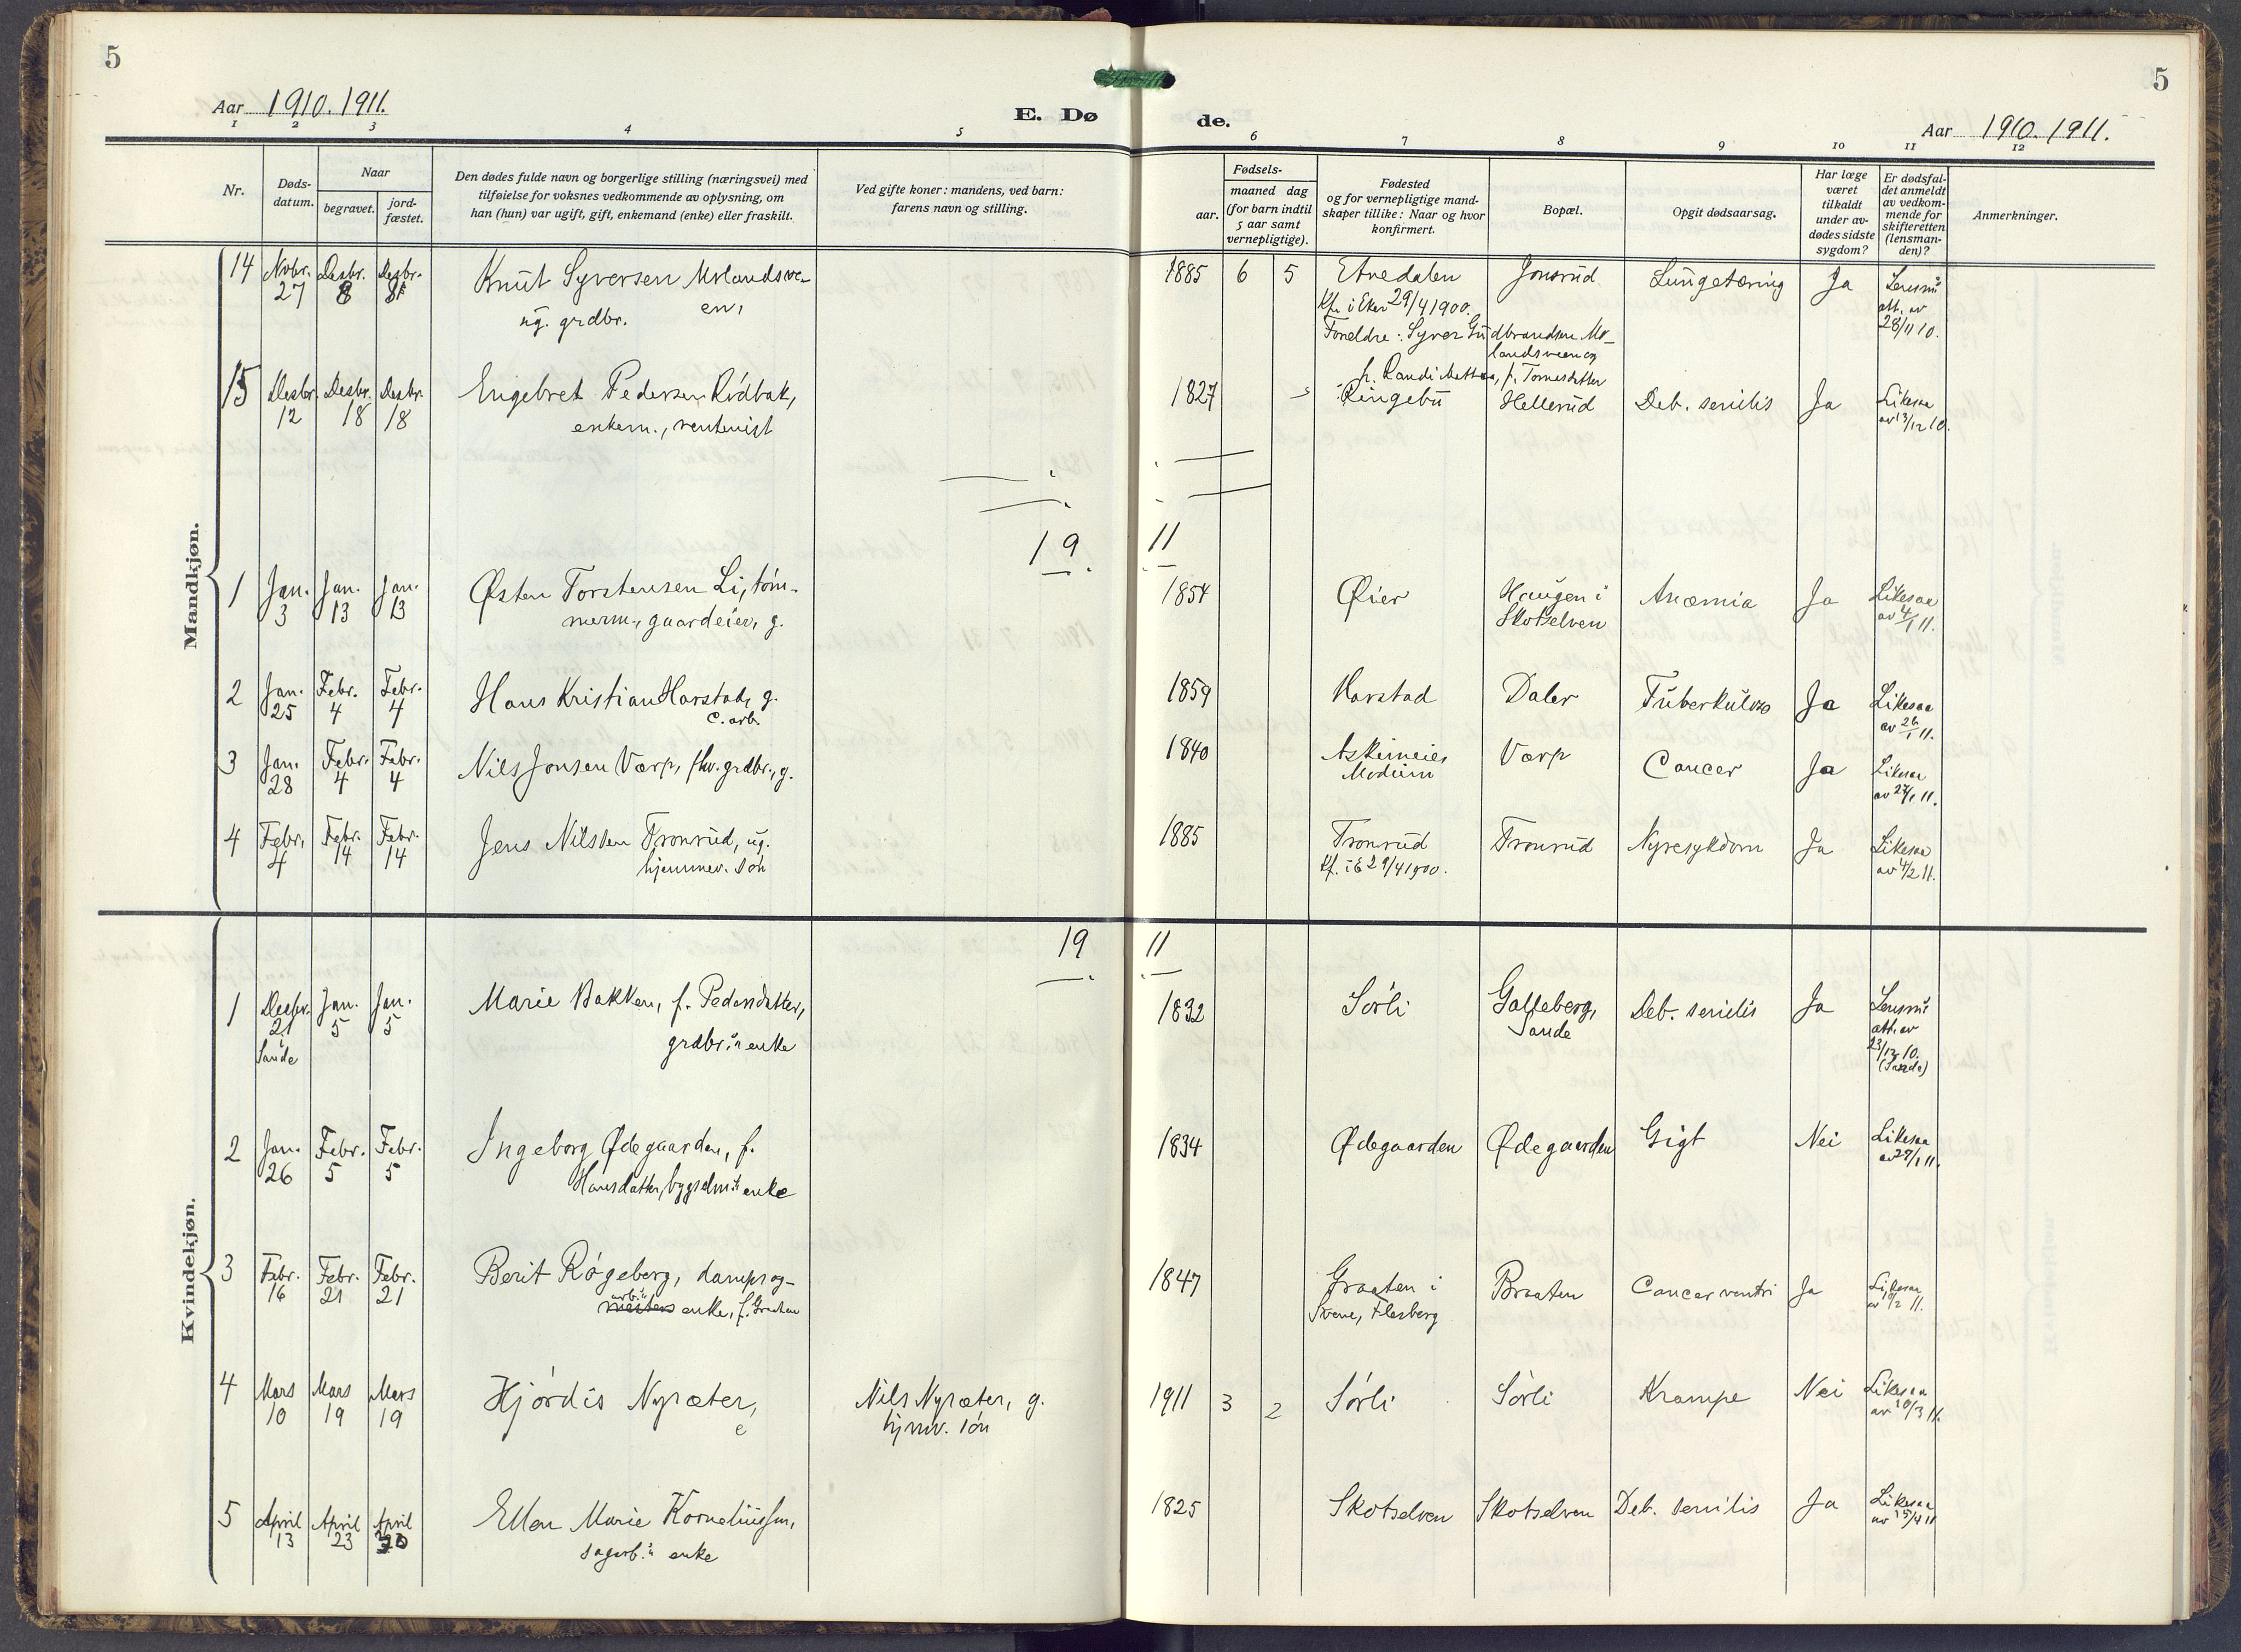 5
5
Aar 1910. 1911.
E. Dø
de.
Aar 1910. 1911.
1 2 3 4 5 6 7 8 9 10 11 12
Nr.
Døds-
datum.
Naar
begravet.
jord-
fæstet.
Den dødes fulde navn og borgerlige stilling (næringsvei) med
tilføielse for voksnes vedkommende av oplysning, om
han (hun) var ugift, gift, enkemand (enke) eller fraskilt.
Ved gifte koner: mandens, ved barn:
farens navn og stilling.
Fødsels-
aar.
maaned dag
(for barn indtil
5 aar samt
vernepligtige).
Fødested
og for vernepligtige mand-
skaper tillike: Naar og hvor
konfirmert.
Bopæl.
Opgit dødsaarsag.
Har læge
været
tilkaldt
under av-
dødes sidste
sygdom?
Er dødsfal-
det anmeldt
av vedkom-
mende for
skifteretten
(lensman-
den)?
Anmerkninger.
Mandkjøn.
14 Novbr. 27 Desbr. 8 Desbr. 8 Knut Syversen Molandsve-
en, ug. grdbr.
1885 6 5 Etnedalen Jonsrud Lungetæring Ja
Kfr. i Eker 29/4 1900.
att. av
28/11 10.
Foreldre: Syver Gudbrandsen Mo-
landsveen og
15 Desbr. 12 Desbr. 18 Desbr. 18 Engebret Pedersen Rødbak,
enkem., rentenist
1827 Ringebu Hellerud Deb. senilis Ja Likesaa
av 13/12 10.
19 11
1 Jan. 3 Jan. 13 Jan. 13 Østen Torstensen Li, tøm-
merm., gaardeier, g.
1854 Øier Haugen i
Skotselven Anæmia Ja Likesaa
av 4/1 11.
2 Jan. 25 Febr. 4 Febr. 4 Hans Kristian Harstad, g.
c. arb.
1859 Harstad Daler Tuberkulos Ja Likesaa
av 26/1 11.
3 Jan. 28 Febr. 4 Febr. 4 Nils Jonsen Varp, fhv. grdbr., g.
1840 Askimeier
Modum Varp Cancer Ja Likesaa
4 Febr. 4 Febr. 14 Febr. 14 Jens Nilssen Tronrud, ug.
hjemmev. søn
1885 Tronrud Tronrud Nyresykdom Ja Likesaa
Kf. i E 29/4 1900.
av 4/2 11.
Kvindekjøn.
19 11
1 Desbr. 21 i Sande Jan. 5 Jan. 5 Marie Bakken, f. Pedersdatter,
grdbr.s enke
1832 Sørli Galleberg,
Sande Deb. senilis Ja
att. av
23/12 10.
(Sande)
2 Jan. 26 Febr. 5 Febr. 5 Ingeborg Ødegaarden, f.
Hansdatter, bygselm.s enke
1834 Ødegaarden Ødegaarden Gigt Nei Likesaa
3 Febr. 16 Febr. 21 Febr. 21 Berit Røgeberg, dampsag-
arb.s
mesters enke, f. Graaten
1847 Graaten i
Svene, Flesberg Braaten Cancer ventri Ja Likesaa
4 Mars 10 Mars 19 Mars 19 Hjørdis Nysæter,
e
Nils Nysæter, g.
hjmv. søn
1911 3 2 Sørli Sørli Krampe Nei Likesaa
av 10/3 11.
5 April 13 April 23 April 23 Ellen Marie Korneliussen,
sagarb.s enke
1825 Skotselven Skotselven Deb. senilis Ja Likesaa
av 15/4 11